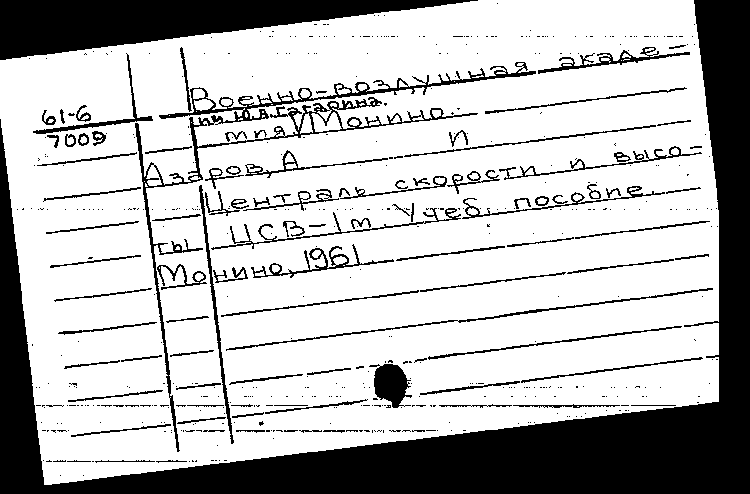 61-6
7009
Военно-воздушная акаде-
им. Ю.А.Гагарина.
мия Монино.
Азаров, А И
Централь скорости и высо-
ты ЦСВ-1м. Учеб. пособие.
Монино, 1961.